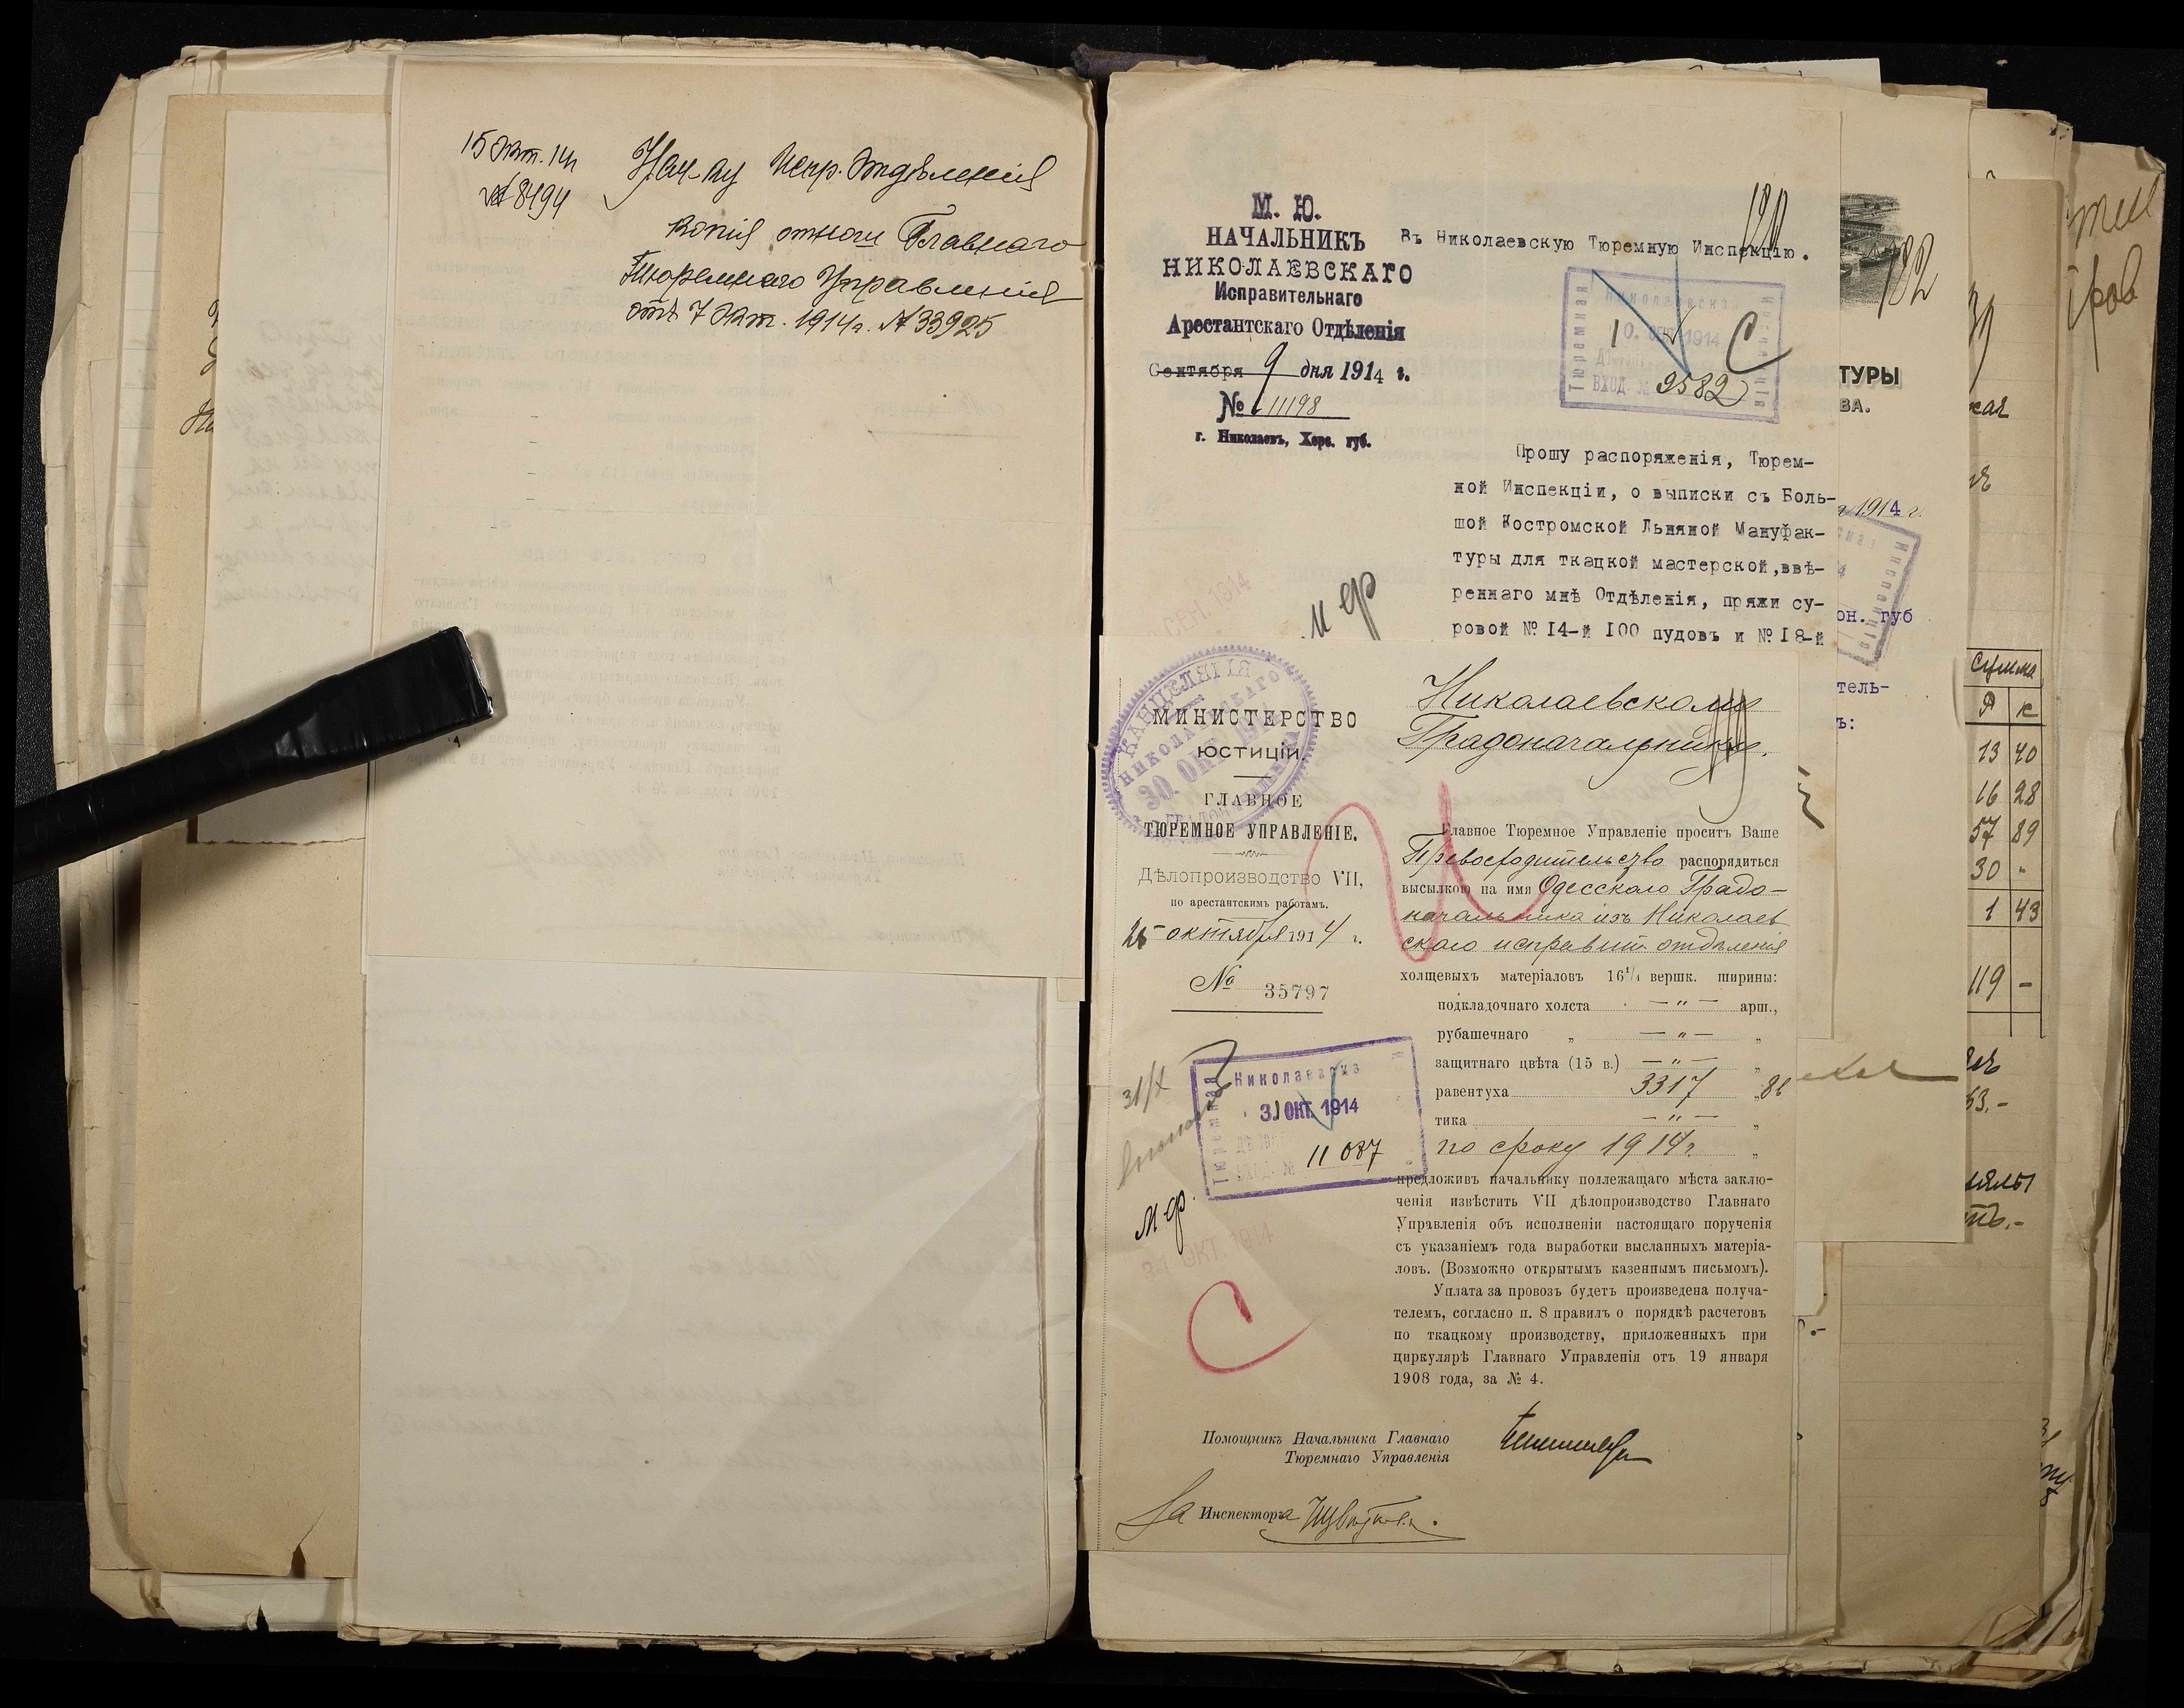 15 окт. 14 г.
№ 8494
Нач-ку Испр. Отдѣленія
копія отнош Главнаго
Тюремнаго Управленія
отъ 7 окт. 1914 г. № 33925
М. Ю.
НАЧАЛЬНИКЪ
НИКОЛАЕВСКАГО
Исправительнаго
Арестантскаго Отдѣленія
Сентября 9 дня 1914 г.
№ 11198
г. Николаевъ, Херс. губ.
Въ Николаевскую Тюремную Инспекцію.
Николаевска
Тюремная
Инспекція
10. СЕН. 1914
ВХОД. № 9582
Прошу распоряженія, Тюрем-
ной Инспекціи, о выписки съ Боль-
шой Костромской Льняной Мануфак-
туры для ткацкой мастерской,ввѣ-
реннаго мнѣ Отдѣленія, пряжи су-
ровой № I4-й I00 пудовъ и № I8-й
182
ТУРЫ
ВА.
1914 г.
он. губ
тель-
ъ:
Сумма
Р к
13 40
16 28
57 89
30 "
1 43
119 -
МИНИСТЕРСТВО
ЮСТИЦІИ.
ГЛАВНОЕ
ТЮРЕМНОЕ УПРАВЛЕНІЕ.
Дѣлопроизводство VII,
по арестантскимъ работамъ.
25 октября 1914 г.
№ 35797
КАНЦЕЛЯРІЯ
НИКОЛАЕВСКАГО
30 ОКТ 1914
31/X
Николаевска
Тюремная
31 ОКТ. 1914
11 087
М Ф.
31 ОКТ. 1914
Николаевскому
Градоначальнику.
Главное Тюремное Управленіе проситъ Ваше
Превосходительство распорядиться
высылкою на имя Одесскаго Градо-
начальника изъ Николаев
скаго исправит. отдѣленія
холщевыхъ матеріаловъ 16¹/₄ вершк. ширины:
подкладочнаго холста — " — арш.,
рубашечнаго „ — " — „
защитнаго цвѣта (15 в.) — " — „
равентуха 3317 „
тика — " — „
по сроку 1914 г. „
предложивъ начальнику подлежащаго мѣста заклю-
ченія извѣстить VII дѣлопроизводство Главнаго
Управленія объ исполненіи настоящаго порученія
съ указаніемъ года выработки высланныхъ матеріа-
ловъ. (Возможно открытымъ казеннымъ письмомъ).
Уплата за провозъ будетъ произведена получа-
телемъ, согласно п. 8 правилъ о порядкѣ расчетовъ
по ткацкому производству, приложенныхъ при
циркулярѣ Главнаго Управленія отъ 19 января
1908 года, за № 4.
Помощникъ Начальника Главнаго
Тюремнаго Управленія
За Инспектора